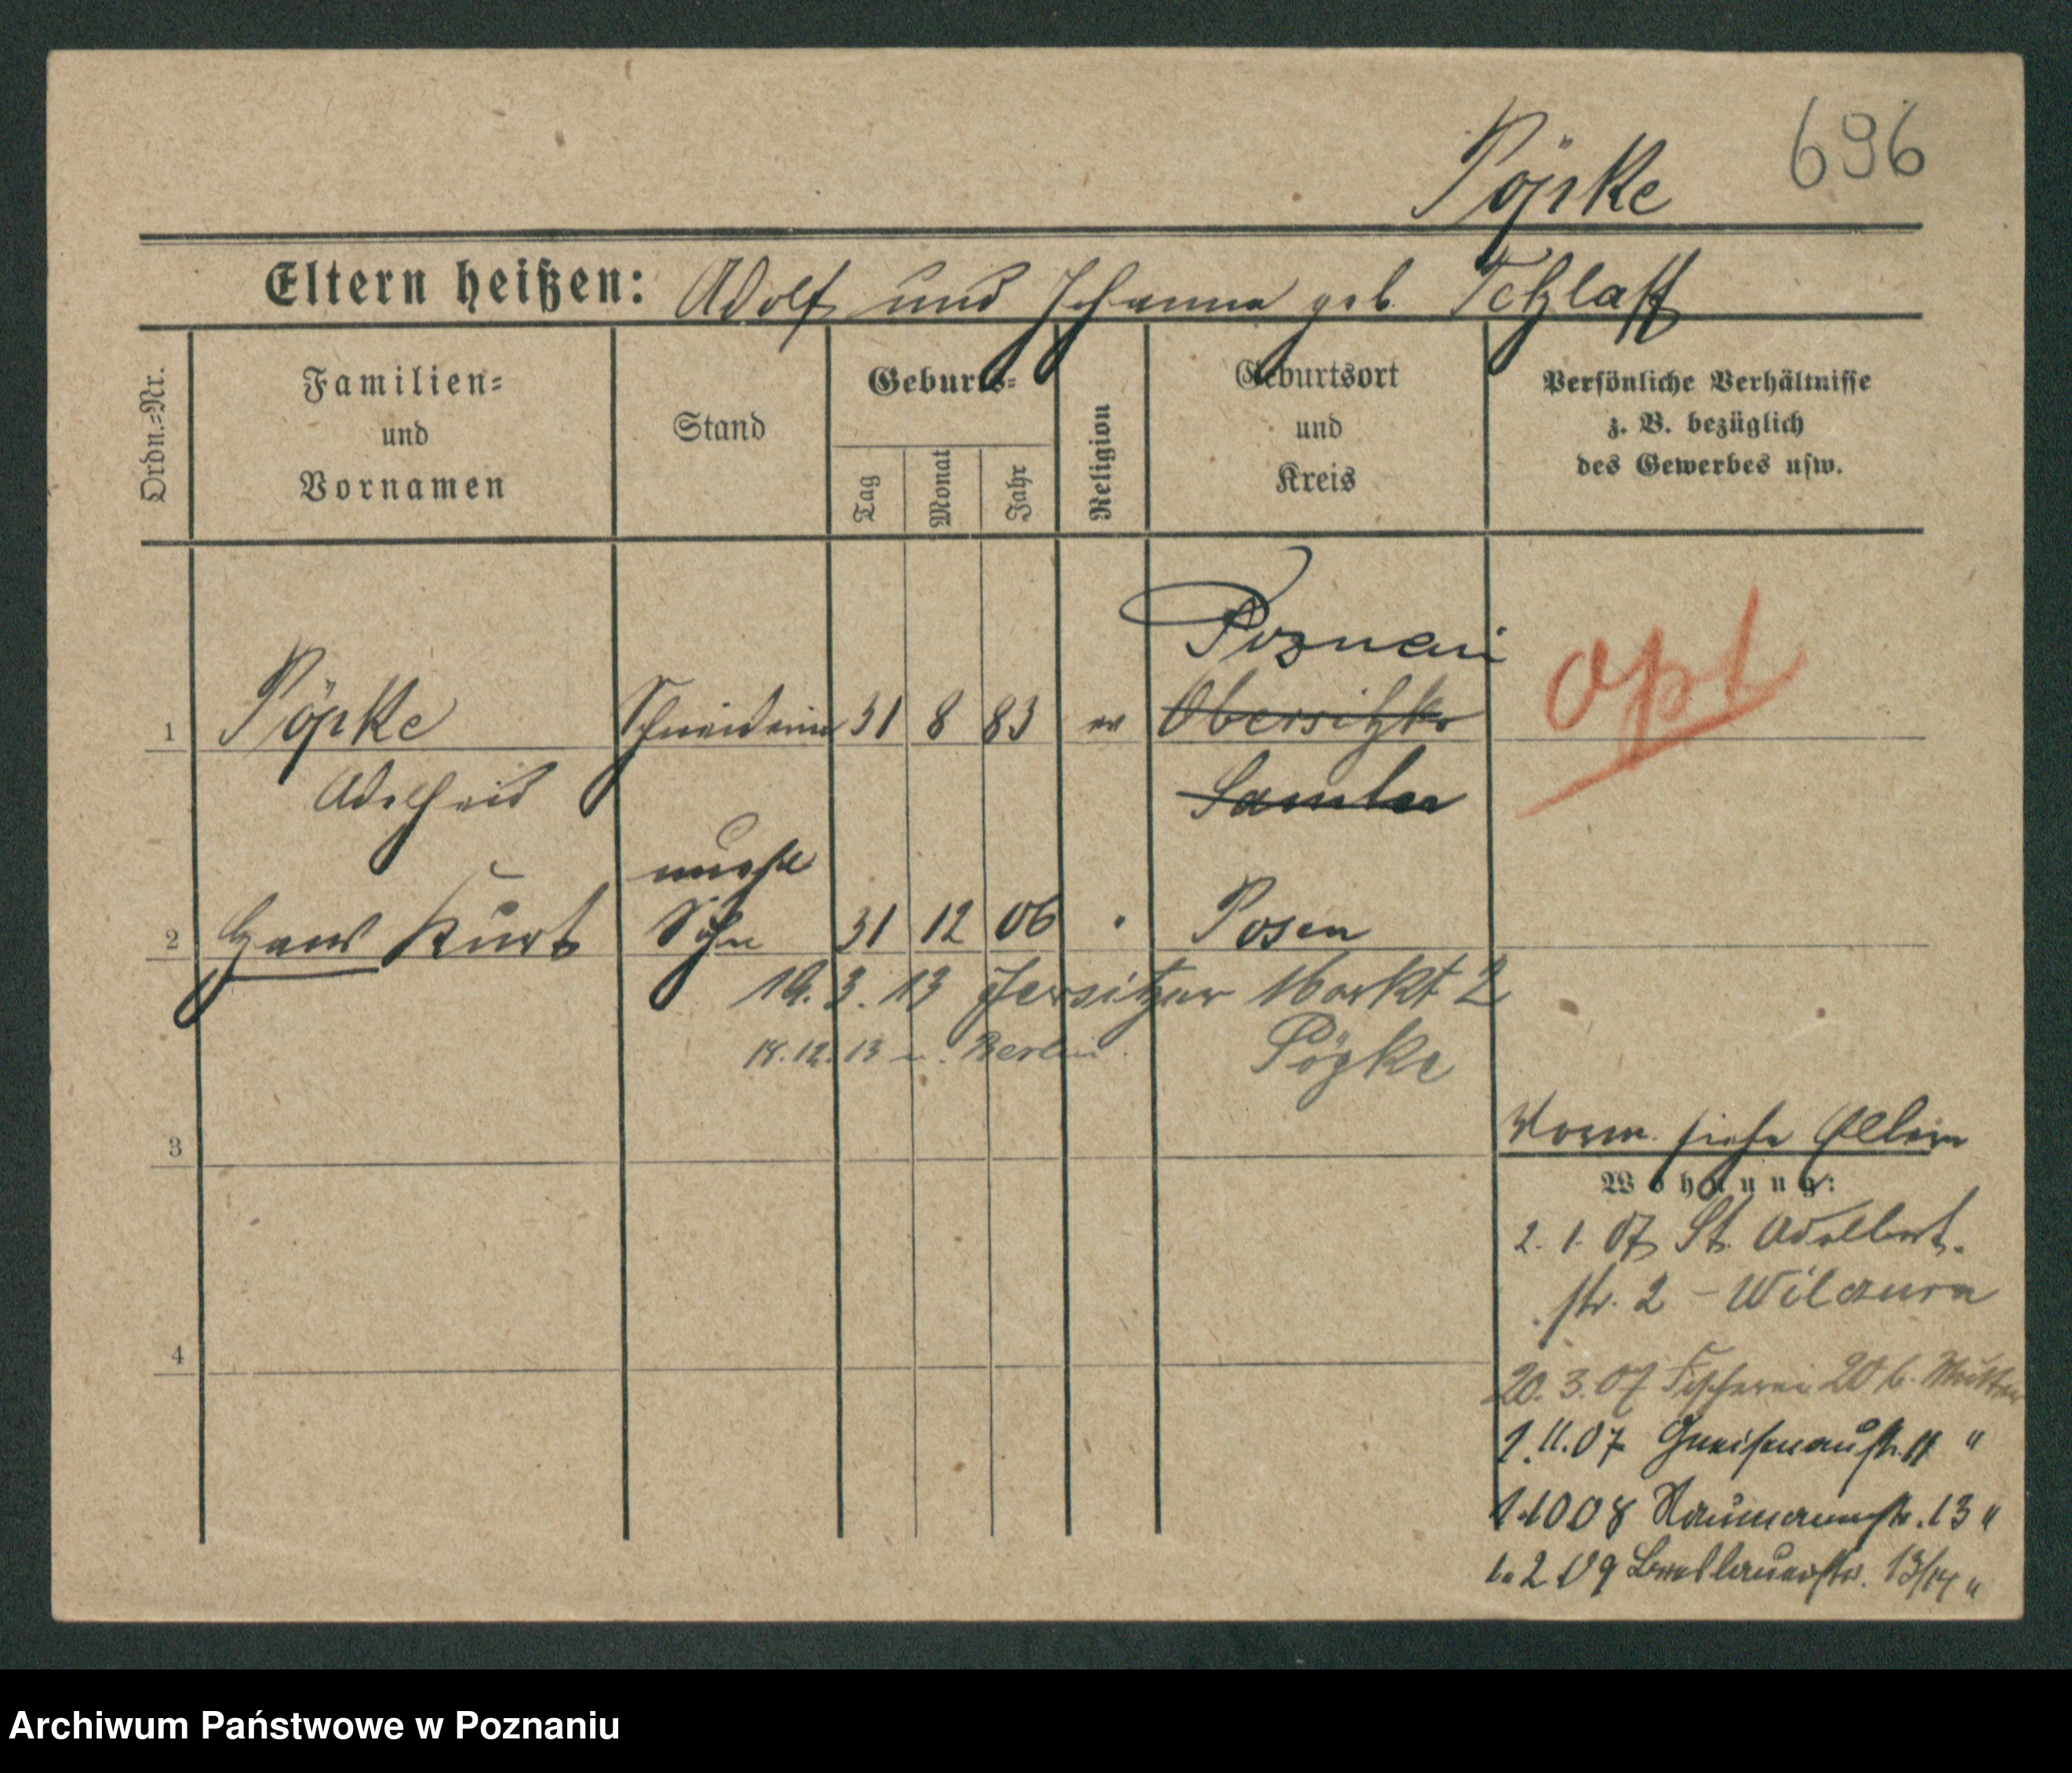 696
Pöpke
Eltern heißen: Adolf und Johanna geb. Tetzlaff
Ordn.=Nr.
Familien=
und
Vornamen
Stand
Geburts=
Tag
Monat
Jahr
Religion
Geburtsort
und
Kreis
Persönliche Verhältnisse
z. B. bezüglich
des Gewerbes usw.
Poznań
1 Pöpke Schneiderin 31 8 83 ev Obersitzko
Opt
Adelheid Samter
unehl
2 Hans Kurt Sohn 31 12 06 " Posen
19. 3. 13 Jersitzer Markt 2
18. 12. 13 n. Berlin. Pöpke
3
Vorm. siehe Eltern
Wohnung:
2. 1. 07 St. Adalbert.
str. 2 - Wilczura
4
20. 3. 07 Fischerei 20 b. Mutter
1. 11. 07 Gneisenaustr. 11 "
1. 10 08 Naumannstr. 13 "
1. 2 09 Breslauerstr. 13/14 "
Archiwum Państwowe w Poznaniu